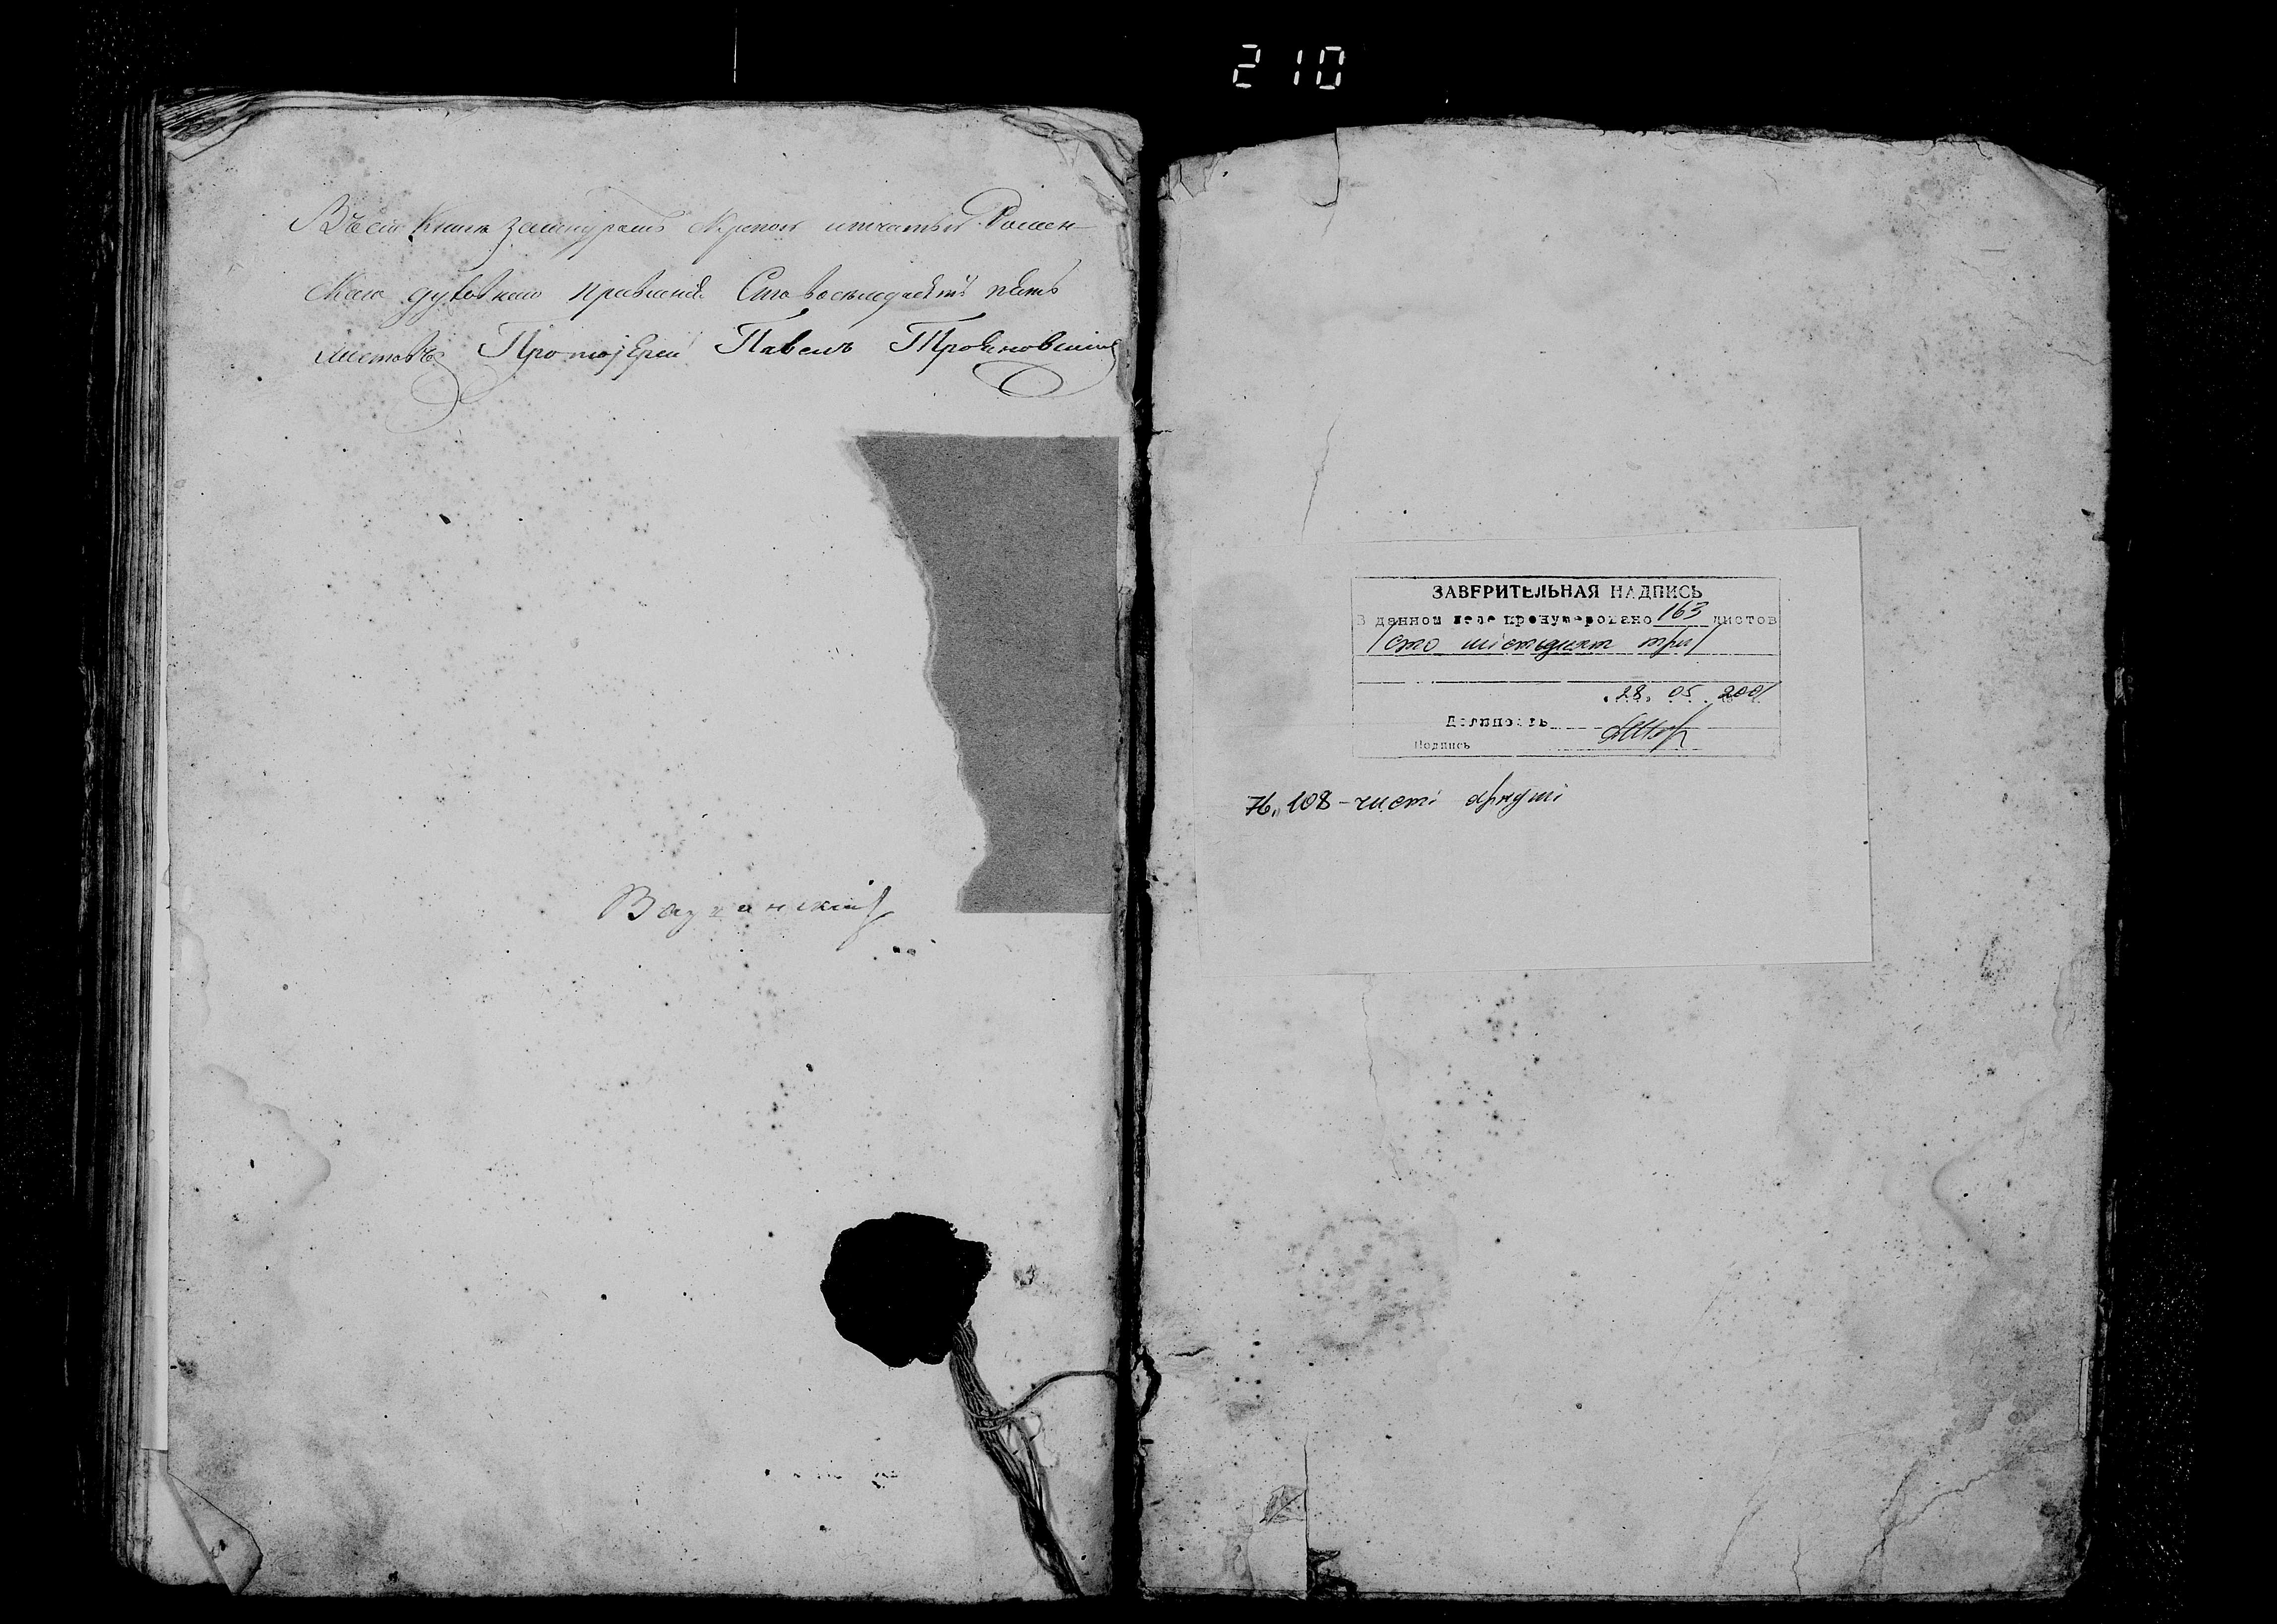 210
Въ сей Книгѣ за шнуромъ Скрепою и печатью Ромен-
скаго духовнаго правленія Сто восемдесятъ пять
листовъ Протоіерей Павелъ
ЗАВЕРИТЕЛЬНАЯ НАДПИСЬ
В данном деле пронумеровано 163 листов
/сто шістдесят три/
28. 05 2001
Должность
Подпись
76, 108 - чисті аркуші